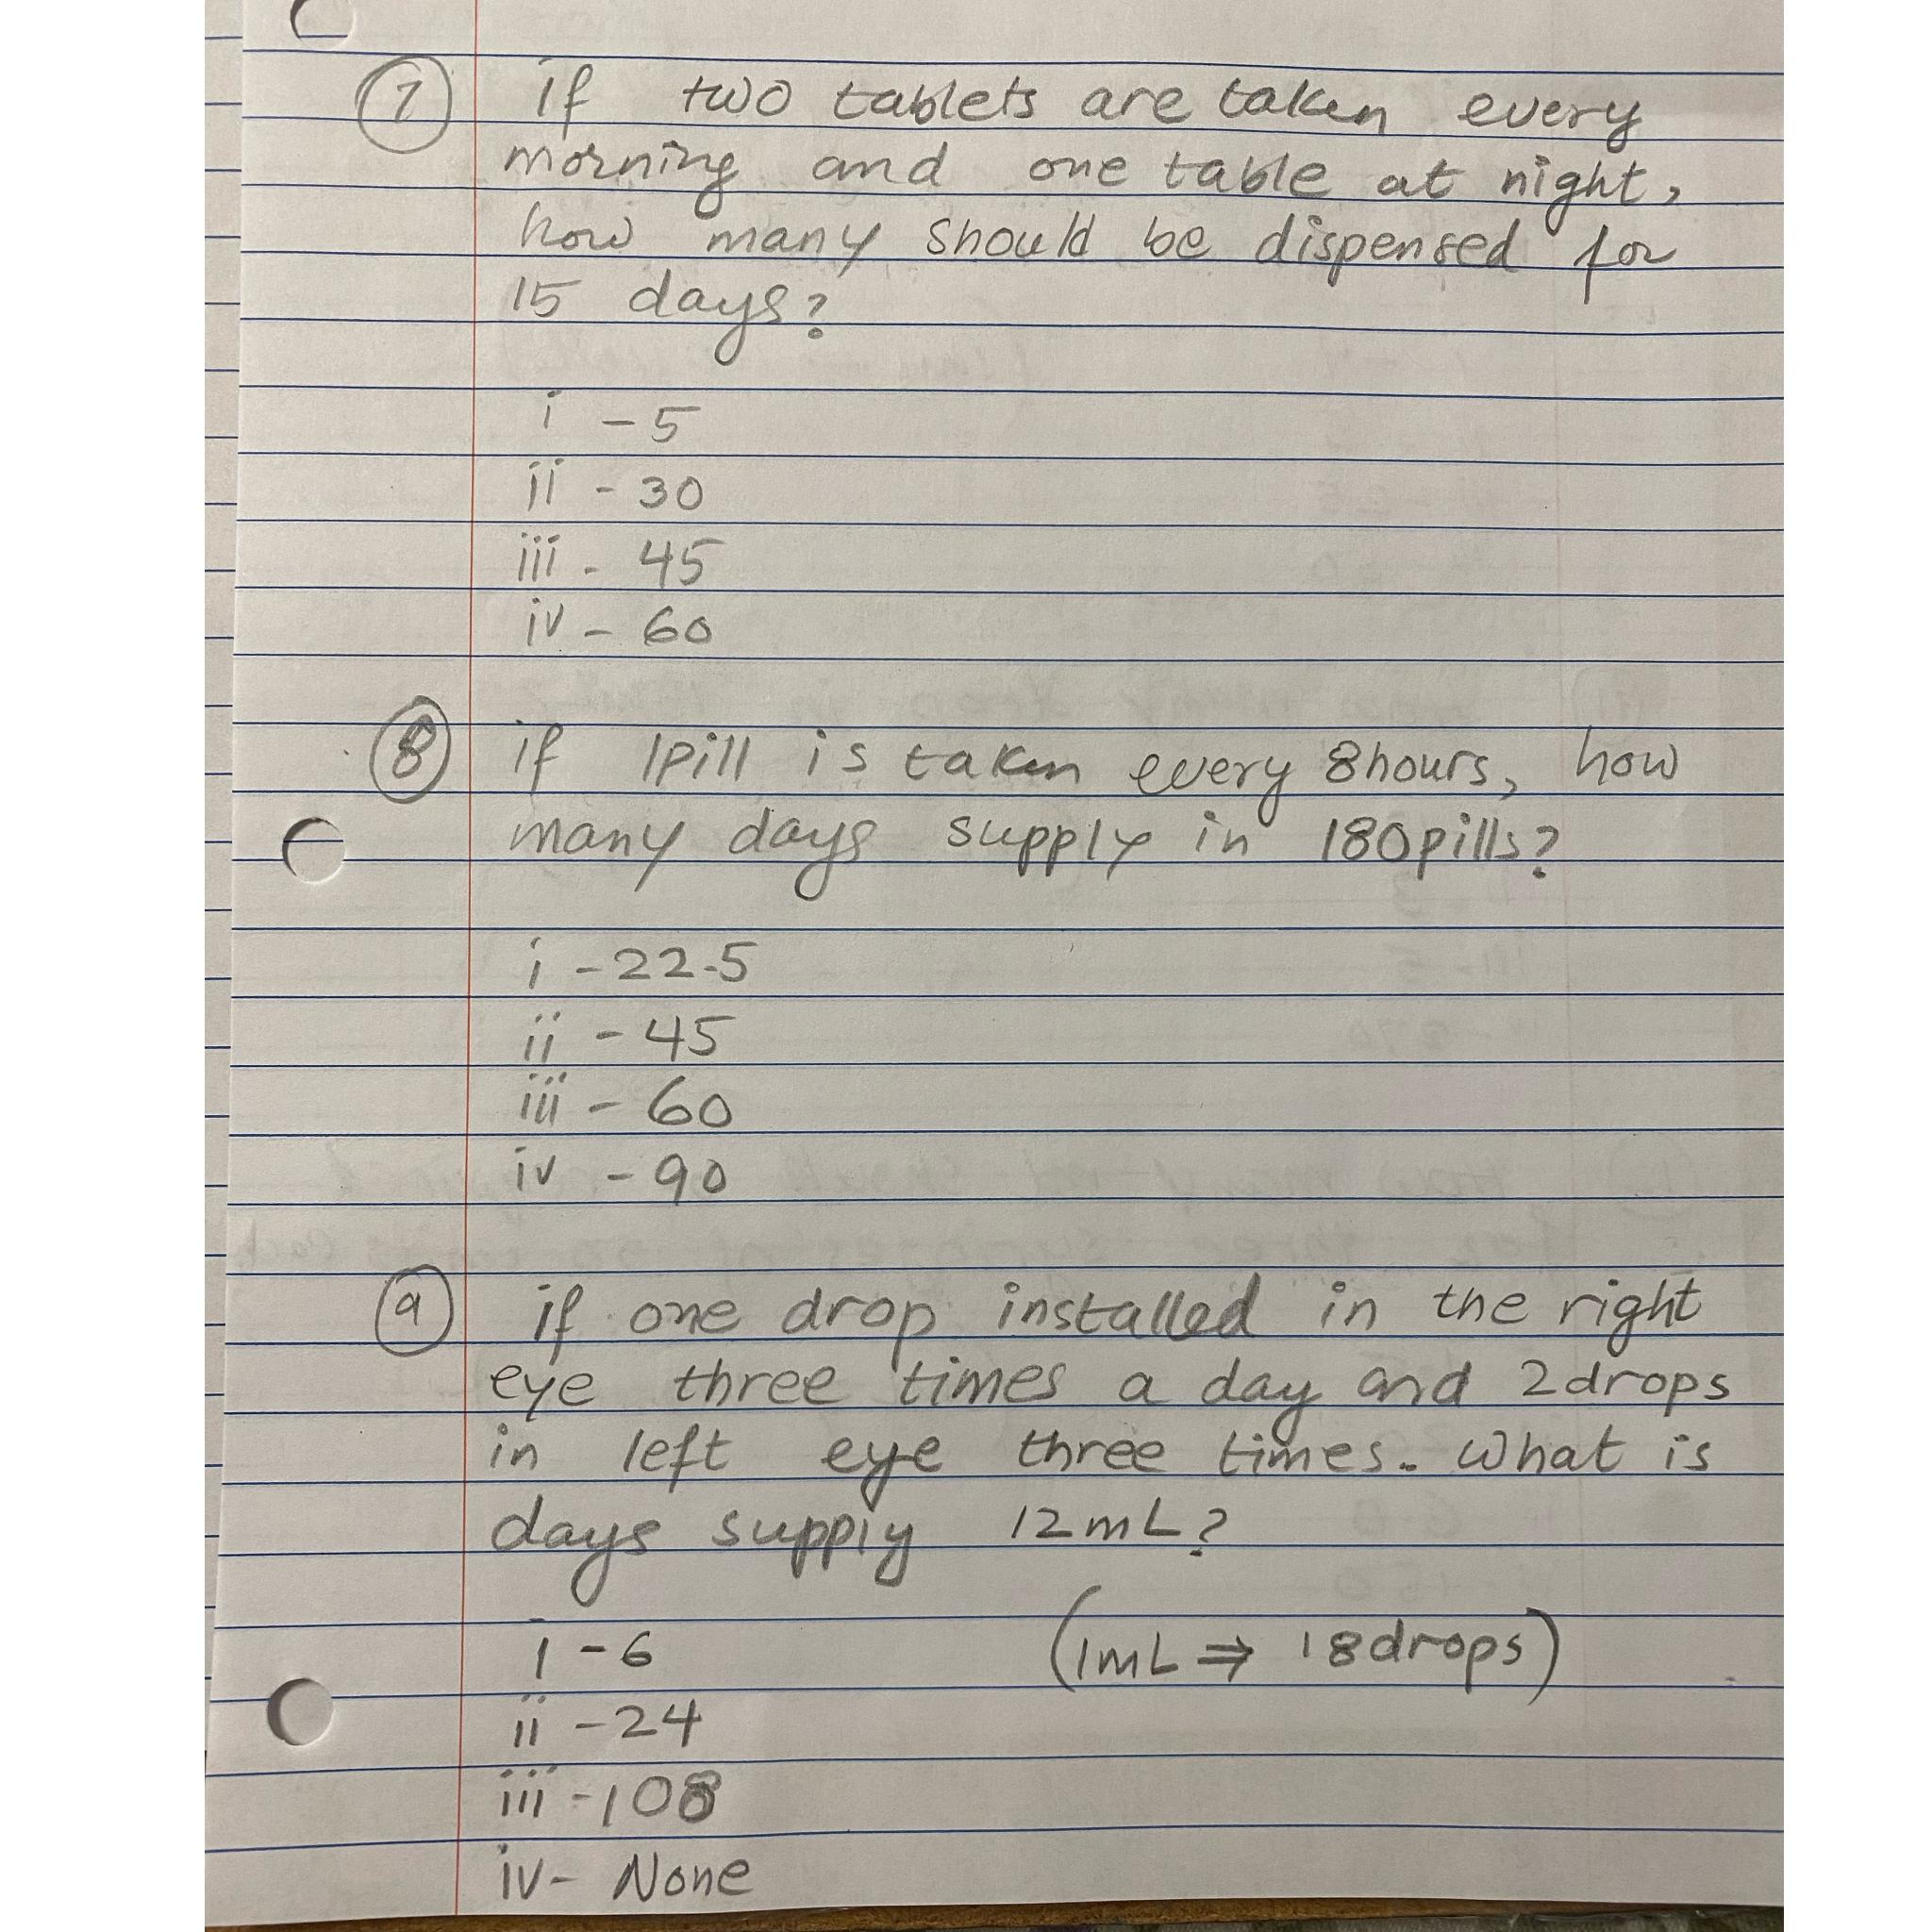 7 if two tablets are taken every
morning and one table at night,
how many should be dispensed for
15 days?
i - 5
ii - 30
iii - 45
iv - 60
8 if 1pill is taken every 8hours, how
many days supply in 180pills?
i - 22.5
ii - 45
iii - 60
iv - 90
9 if one drop installed in the right
eye three times a day and 2drops
in left eye three times. What is
days supply 12mL?
i - 6 (1mL ⇒ 18drops)
ii - 24
iii - 108
iv - None